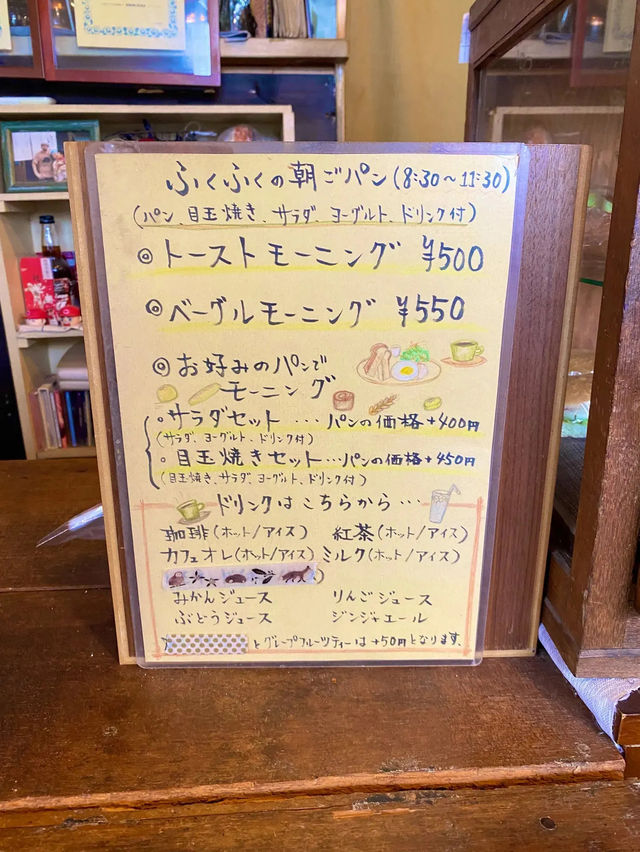 ふくふくの朝ごパン(8:30〜11:30)
(パン、目玉焼き、サラダ、ヨーグルト、ドリンク付)
◎トーストモーニング ¥500
◎ベーグルモーニング ¥550
◎お好みのパンで
モーニング
・サラダセット…パンの価格+400円
(サラダ、ヨーグルト、ドリンク付)
・目玉焼きセット…パンの価格+450円
(目玉焼き、サラダ、ヨーグルト、ドリンク付)
ドリンクはこちらから…
珈琲(ホット/アイス) 紅茶(ホット/アイス)
カフェオレ(ホット/アイス) ミルク(ホット/アイス)
みかんジュース りんごジュース
ぶどうジュース ジンジャエール
とグレープフルーツティーは+50円となります。